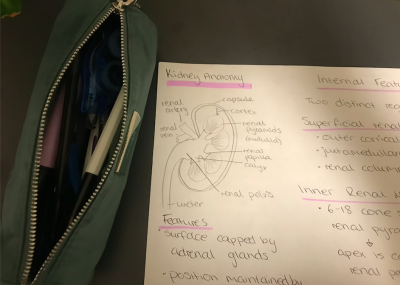 Kidney Anatomy
renal
artery
renal
vein
capsule
cortex
renal
pyramids
(medulla)
renal
papilla
calyx
renal pelvis
ureter
Features
• surface capped by
adrenal glands
• position maintained by
Internal
Two distinct
Superficial renal
• outer cortical
• juxtamedullary
• renal column
Inner Renal
• 6-18 cone
renal
apex is
renal